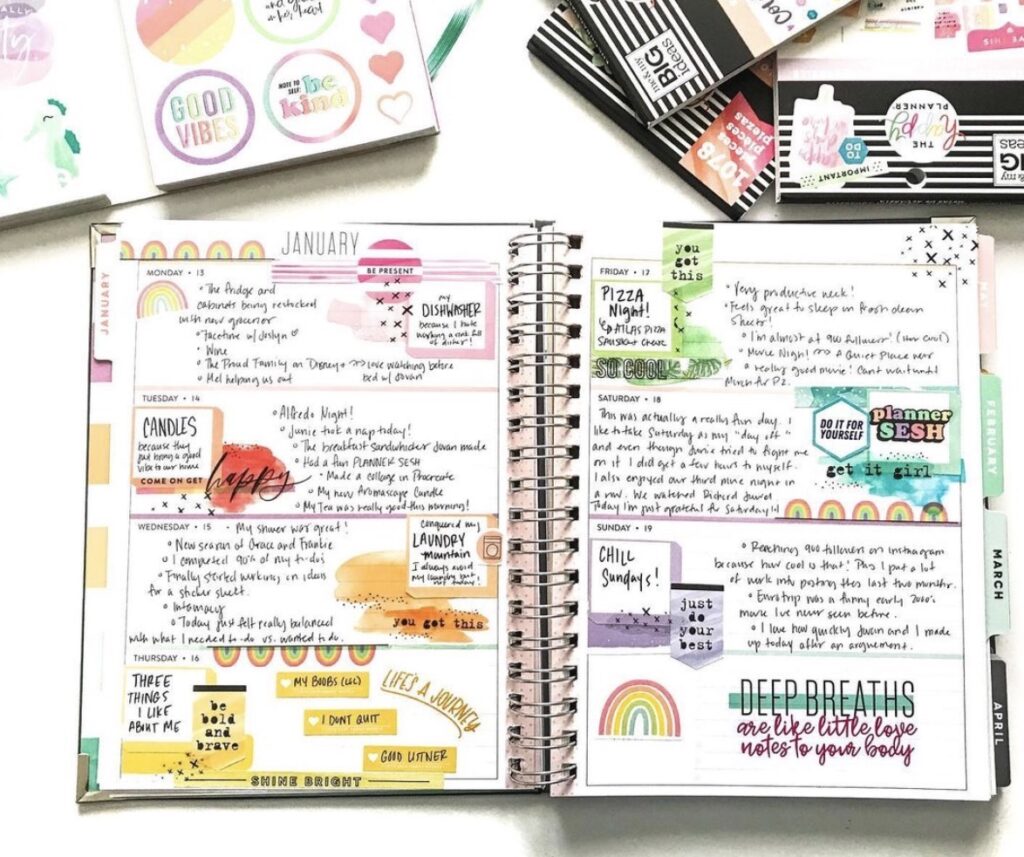 GOOD VIBES
NOTE TO SELF: be kind
me & my BIG ideas
1078
pieces
piezas
THE HAPPY PLANNER
TO DO
IMPORTANT
BIG
IDEAS
JANUARY
JANUARY
BE PRESENT
MONDAY • 13
• The fridge and
cabinets being restocked
with new groceries
• Facetime w/ Joslyn
• Wine
• The Proud Family on Disney+
love watching before
bed w/ Jovan
• Mel helping us out
my
DISHWASHER
because I hate
working a sink full
of dishes!
TUESDAY • 14
CANDLES
because they
put bring a good
vibe to our home
COME ON GET happy
• Alfredo Night!
• Junie took a nap today!
• The breakfast sandwiches Jovan made
• Had a fun PLANNER SESH
• Made a collage in Procreate
• My new Aromascape Candle
• My Tea was really good this morning!
WEDNESDAY • 15
• My shower was great!
• New season of Grace and Frankie
• I completed 90% of my to-dos
• Finally started working on ideas
for a sticker sheet.
• Intimacy
• Today just felt really balanced
with what I needed to do vs. wanted to do.
conquered my
LAUNDRY
mountain
I always avoid
my laundry but
not today!
you got this
THURSDAY • 16
THREE
THINGS
I LIKE
ABOUT ME
be
bold
and
brave
MY BOOBS (LOL)
I DONT QUIT
GOOD LISTNER
LIFE'S A JOURNEY
SHINE BRIGHT
FRIDAY • 17
PIZZA
Night!
ATLAS PIZZA
SO COOL
you
got
this
• Very productive week!
• Feels great to sleep in fresh clean
sheets!
• I'm almost at 900 followers! (How Cool)
• Movie Night! A Quiet Place was
a really good movie! Cant wait until
March for P2.
SATURDAY • 18
This was actually a really fun day. I
like to take Saturday as my "day off"
and even though Junie tried to fight me
on it I did get a few hours to myself.
I also enjoyed our third movie night in
a row. We watched Richard Jewell
Today I'm just grateful for Saturday!
DO IT FOR
YOURSELF
planner
SESH
get it girl
SUNDAY • 19
CHILL
Sundays!
just
do
your
best
• Reaching 900 followers on instagram
because how cool is that! Plus I put a lot
of work into posting this last two months.
• Eurotrip was a funny early 2000's
movie I've never seen before.
• I love how quickly Jovan and I made
up today after an arguement.
DEEP BREATHS
are like little love
notes to your body
MAY
FEBRUARY
MARCH
APRIL